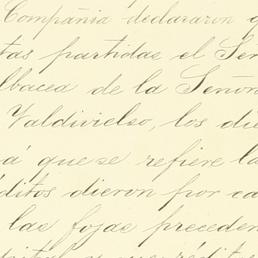 Compañia declararon q
tas partidas el Señ
lbacea de la Señor
Valdivielso, los die
á que se refiere la
éditos dieron por ca
las fojas preceden